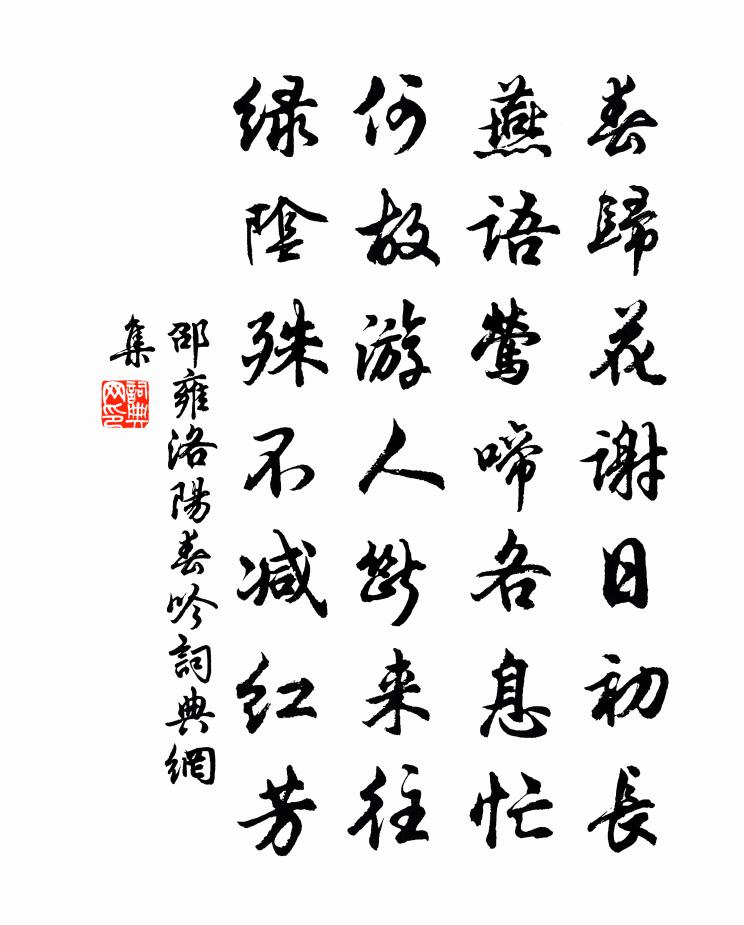 春歸花謝日初長
燕語鶯啼各息忙
何故游人斷来往
绿陰殊不减红芳
邵雍洛陽春吟詞典網
集
詞典
网印